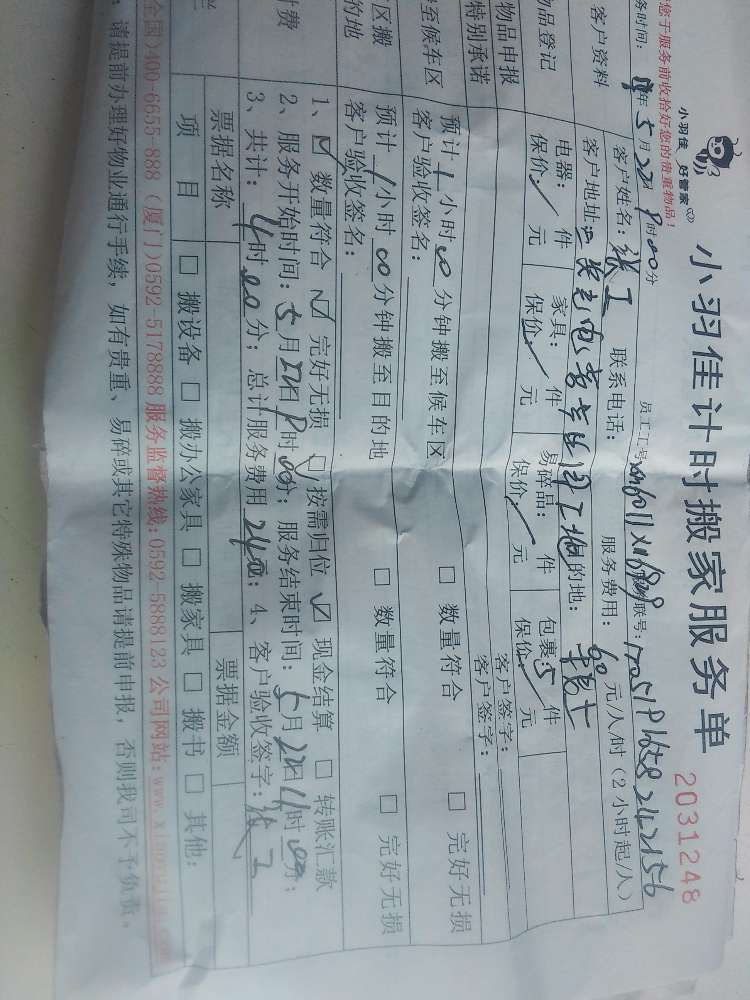 小羽佳计时搬家服务单
2031248
小羽佳 好管家
您于服务前收拾好您的贵重物品！
务时间： 年5月22日 8时00分 员工工号 联号：
客户资料 客户姓名：张工 联系电话： 服务费用：60元/人/时（2小时起/人）
客户地址： 的地：
品登记 电器： 件 家具： 件 易碎品： 件 包裹：5件
保价： 元 保价： 元 保价： 元 保价： 元
物品申报 客户签字：
特别承诺 客户签字：
至候车区 预计1小时00分钟搬至候车区 □ 数量符合 □ 完好无损
客户验收签名：
区搬 预计1小时00分钟搬至目的地 □ 数量符合 □ 完好无损
的地 客户验收签名：
1、☑ 数量符合 ☑ 完好无损 □ 按需归位 ☑ 现金结算 □ 转账汇款
付费 2、服务开始时间：5月22日8时00分；服务结束时间：5月22日 时00分；
3、共计：4时00分；总计服务费用240元；4、客户验收签字：张工
票据名称 票据金额
项 目 □ 搬设备 □ 搬办公家具 □ 搬家具 □ 搬书 □ 其他：
全国)400-6655-888 (厦门)0592-5178888 服务监督热线：0592-5888123 公司网站：www.xiaoyujia.com
：请提前办理好物业通行手续，如有贵重、易碎或其它特殊物品请提前申报，否则我司不予负责。